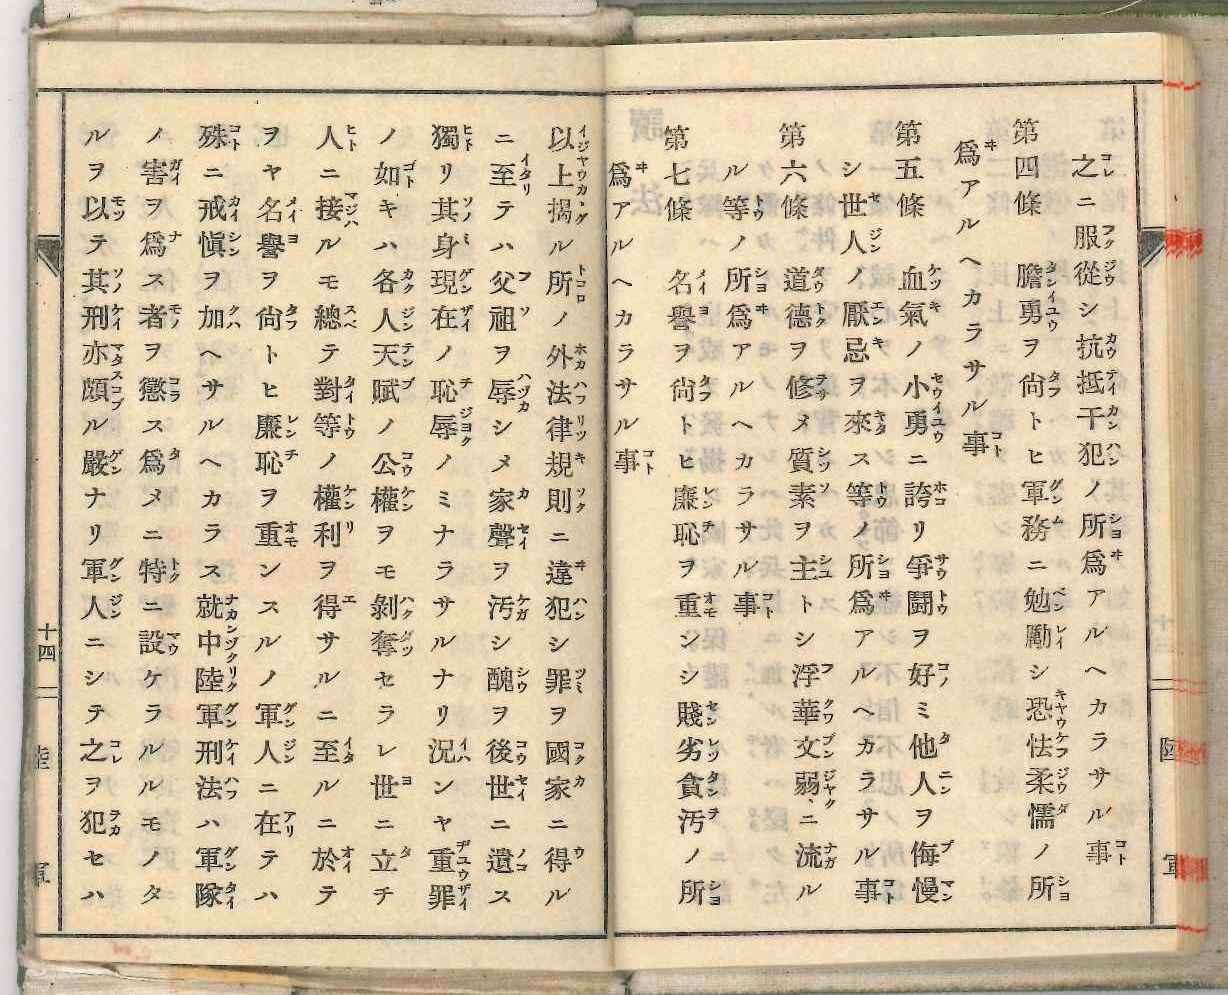 之ニ服從シ抗抵干犯ノ所爲アルヘカラサル事
第四條　膽勇ヲ尙トヒ軍務ニ勉勵シ恐怯柔懦ノ所
爲アルヘカラサル事
第五條　血氣ノ小勇ニ誇リ爭鬪ヲ好ミ他人ヲ侮慢
シ世人ノ厭忌ヲ來ス等ノ所爲アルヘカラサル事
第六條　道德ヲ修メ質素ヲ主トシ浮華文弱ニ流ル
ル等ノ所爲アルヘカラサル事
第七條　名譽ヲ尙トヒ廉恥ヲ重ンシ賤劣貪汚ノ所
爲アルヘカラサル事
以上揭ル所ノ外法律規則ニ違犯シ罪ヲ國家ニ得ル
ニ至テハ父祖ヲ辱シメ家聲ヲ汚シ醜ヲ後世ニ遺ス
獨リ其身現在ノ恥辱ノミナラサルナリ況ンヤ重罪
ノ如キハ各人天賦ノ公權ヲモ剝奪セラレ世ニ立チ
人ニ接ルモ總テ對等ノ權利ヲ得サルニ至ルニ於テ
ヲヤ名譽ヲ尙トヒ廉恥ヲ重ンスルノ軍人ニ在テハ
殊ニ戒愼ヲ加ヘサルヘカラス就中陸軍刑法ハ軍隊
ノ害ヲ爲ス者ヲ懲ス爲メニ特ニ設ケラルルモノタ
ルヲ以テ其刑亦頗ル嚴ナリ軍人ニシテ之ヲ犯セハ
十四
陸軍